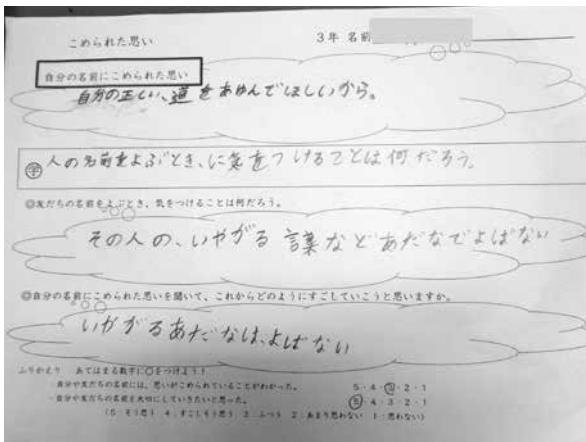 こめられた思い
3年 名前
自分の名前にこめられた思い
自分の正しい、道をあゆんでほしいから。
学 人の名前をよぶとき、に気をつけることは何だろう。
◎友だちの名前をよぶとき、気をつけることは何だろう。
その人の、いやがる言葉などあだなでよばない
◎自分の名前にこめられた思いを聞いて、これからどのようにすごしていこうと思いますか。
いやがるあだなは、よばない
ふりかえり あてはまる数字に○をつけよう!
・自分や友だちの名前には、思いがこめられていることがわかった。 5・4・3・2・1
・自分や友だちの名前を大切にしていきたいと思った。 5・4・3・2・1
(5:そう思う 4:すこしそう思う 3:ふつう 2:あまり思わない 1:思わない)